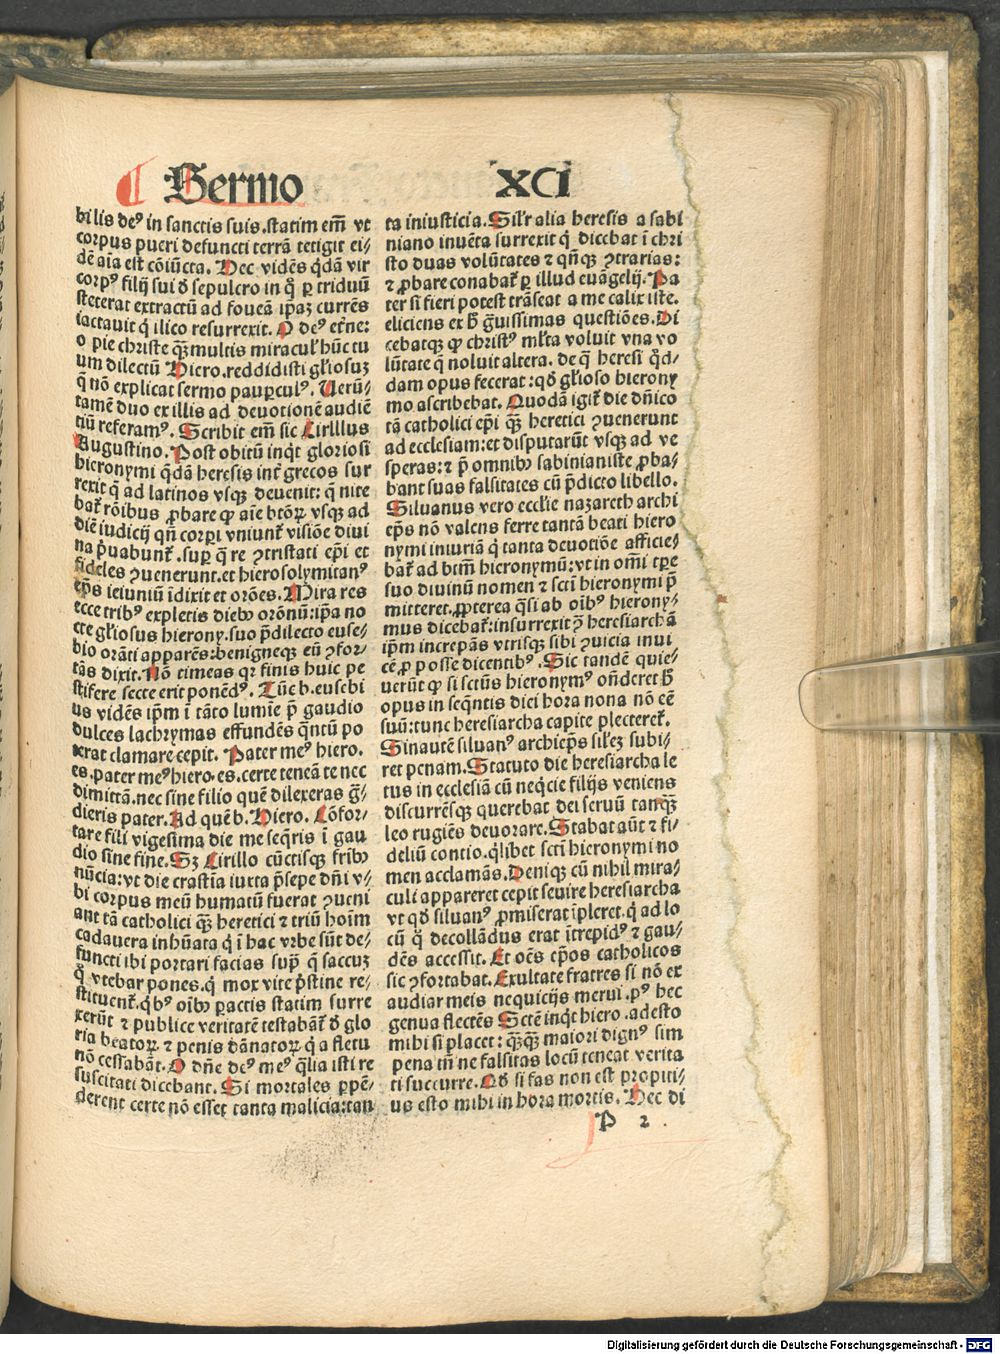 Sermo XCI
bilis deꝰ in sanctis suis. statim em̄ vt
corpus pueri defuncti terrā tetigit ei⸗
dē aīa est cōiūcta. Hec vidēs q̇dā vir
corpꝰ filij sui đ sepulcro in q̊ ꝑ triduū
steterat extractū ad foueā ip̄aꝫ currēs
iactauit q̇ ilico resurrexit. O deꝰ et̄ne:
o pie christe qꝫ̄ multis miracul̕ hūc tu
um dilectū Hiero. reddidisti gl̕iosuꝫ
q̄ nō explicat sermo pauꝑculꝰ. Uerū⸗
tamē duo ex illis ad deuotionē audiē
tiū referamꝰ. Scribit em̄ sic Cirlllus
Augustino. Post obitū inq̇t gloriosi
hieronymi q̄dā heresis int̄ grecos sur
rexit q̄ ad latinos vsqꝫ deuenit: q̄ nite
bat̄ rōibus ꝓbare ꝙ aīe btōꝝ vsqꝫ ad
diē iudicij qn̄ corꝑi vniunt̄ visiōe diui
na p̄uabunt̄. suꝑ q̄ re ꝯtristati ep̄i et
fideles ꝯuenerunt. et hierosolymitanꝰ
ep̄s ieiuniū īdixit et orōes. Mira res
ecce tribꝰ expletis diebꝰ orōnū: ip̄a no
cte gl̕iosus hierony. suo p̄dilecto euse⸗
bio orāti apparēs: benigneqꝫ eū ꝯfor⸗
tās dixit. Nō timeas qr finis huic pe
stifere secte erit ponēdꝰ. Tūc b. eusebi
us vidēs ip̄m ī tāto lumīe p̄ gaudio
dulces lachrymas effundēs q̄ntū po
terat clamare cepit. Pater meꝰ hiero.
es. pater meꝰ hiero. es. certe teneā te nec
dimittā. nec sine filio quē dilexeras g̊⸗
dieris pater. Ad quē b. Hiero. Cōfor⸗
tare fili vigesima die me seq̄ris ī gau
dio sine fine. Sꝫ Cirillo cūctisqꝫ fr̄ibꝰ
nūcia: vt die crastīa iuxta p̄sepe dn̄i v⸗
bi corpus meū humatū fuerat ꝯueni
ant tā catholici qꝫ̄ heretici ⁊ triū hoīm
cadauera inhūata q̄ ī hac vrbe sūt de⸗
functi ibi portari facias sup̄ q̄ saccuꝫ
q̊ vtebar pones. q̄ mox vite p̄stine re⸗
stituent̄. q̇bꝰ oībꝰ ꝑactis statim surre
xerūt ⁊ publice veritatē testabāt̄ đ glo
ria beatoꝝ. ⁊ penis dānatoꝝ. q̇ a fletu
nō cessabāt. O dn̄e deꝰ meꝰ q̄lia isti re
suscitati dicebant. Si mortales ꝑpē⸗
derent certe nō esset tanta malicia: tan
ta iniusticia. Sil̕r alia heresis a sabi
niano inuēta surrexit q̇ dicebat ī chri
sto duas volūtates ⁊ qn̄qꝫ ꝯtrarias:
⁊ ꝓbare conabat̄ ꝑ illud euāgelij. Pa
ter si fieri potest trāseat a me calix iste.
eliciens ex h̄ g̊uissimas questiōes. Di
cebatqꝫ ꝙ christꝰ ml̕ta voluit vna vo
lūtate q̄ noluit altera. de q̄ heresi q̄d⸗
dam opus fecerat: qđ gl̕ioso hierony
mo ascribebat. Quodā igit̄ die dn̄ico
tā catholici ep̄i qꝫ̄ heretici ꝯuenerunt
ad ecclesiam: et disputarūt vsqꝫ ad ve
speras: ⁊ p̄ omnibꝰ sabinianiste ꝓba⸗
bant suas falsitates cū p̄dicto libello.
Siluanus vero eccl̕ie nazareth archi
ep̄s nō valens ferre tantā beati hiero
nymi iniuriā q̇ tanta deuotiōe afficie⸗
bat̄ ad btm̄ hieronymū: vt in om̄i tꝑe
suo diuinū nomen ⁊ scti hieronymi p̄
mitteret. ꝓpterea q̄si ab oībꝰ hierony⸗
mus dicebat̄: insurrexit ꝯ heresiarchā
ip̄m increpās vtrisqꝫ sibi ꝯuicia inui
cē ꝓ posse dicentibꝰ. Sic tandē quie⸗
uerūt ꝙ si sctūs hieronymꝰ on̄deret h̄
opus in seq̄ntis diei hora nona nō eē
suū: tunc heresiarcha capite plecteret̄.
Sinautē siluanꝰ archiep̄s sil̕eꝫ subi⸗
ret penam. Statuto die heresiarcha le
tus in ecclesiā cū neq̇cie filijs veniens
discurrēsqꝫ querebat dei seruū tanqꝫ̄
leo rugiēs deuorare. Stabat aūt ⁊ fi⸗
deliū contio. q̄libet scti hieronymi no
men acclamās. Deniqꝫ cū nihil mira⸗
culi appareret cepit seuire heresiarcha
vt qđ siluanꝰ ꝓmiserat īpleret. q̇ ad lo
cū q̊ decollādus erat ītrepidꝰ ⁊ gau⸗
dēs accessit. Et oēs ep̄os catholicos
sic ꝯfortabat. Exultate fratres si nō ex
audiar meis nequicijs merui. pꝰ hec
genua flectēs Sctē inq̇t hiero. adesto
mihi si placet: qꝫ̄qꝫ̄ maiori dignꝰ sim
pena tn̄ ne falsitas locū teneat verita
ti succurre. Qđ si fas non est propiti⸗
us esto mihi in hora mortis. Hec di
P 2.
Digitalisierung gefördert durch die Deutsche Forschungsgemeinschaft - DFG